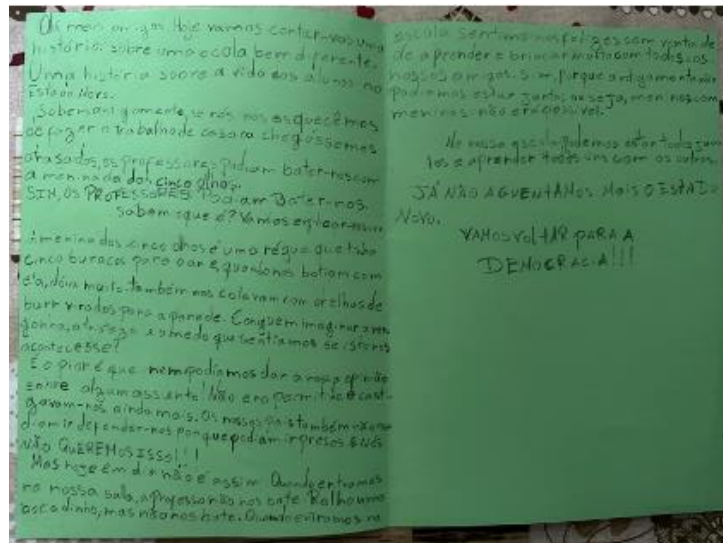 Olá meus amigos. Hoje vamos contar-vos uma
história sobre uma escola bem diferente.
Uma história sobre a vida dos alunos no
Estado Novo.
Sabem antigamente, se nós nos esquecêmos
de fazer o trabalho de casa ou chegássemos
atrasados, os professores podiam bater-nos com
a menina dos cinco olhos.
SIM, OS PROFESSORES Podiam Bater-nos.
Sabem o que é? Vamos explicar-vos
A menina dos cinco olhos é uma régua que tinha
cinco buracos para o ar e, quando nos batiam com
ela, doía mais. Também nos colavam com orelhas de
burro virados para a parede. Conseguem imaginar a ver-
gonha, a tristeza e o medo que sentíamos se isto nos
acontecesse?
E o pior é que nem podíamos dar a nossa opinião
sobre algum assunto! Não era permitido e casti-
gavam-nos ainda mais. Os nossos pais também não po-
diam ir defender-nos porque podiam ir presos E NÓS
NÃO QUEREMOS ISSO!!!
Mas hoje em dia não é assim. Quando entramos
na nossa sala, a professora não nos bate. Ralha um
bocadinho, mas não nos bate. Quando entramos na
escola sentimo-nos felizes com vontade
de aprender e brincar muito com todos os
nossos amigos. Sim, porque antigamente não
podíamos estar juntos, ou seja, meninos com
meninas não era possível.
Na nossa escola podemos estar todos jun-
tos e aprender todos uns com os outros.
JÁ NÃO AGUENTAMOS MAIS O ESTADO
NOVO.
VAMOS VOLTAR PARA A
DEMOCRACIA!!!